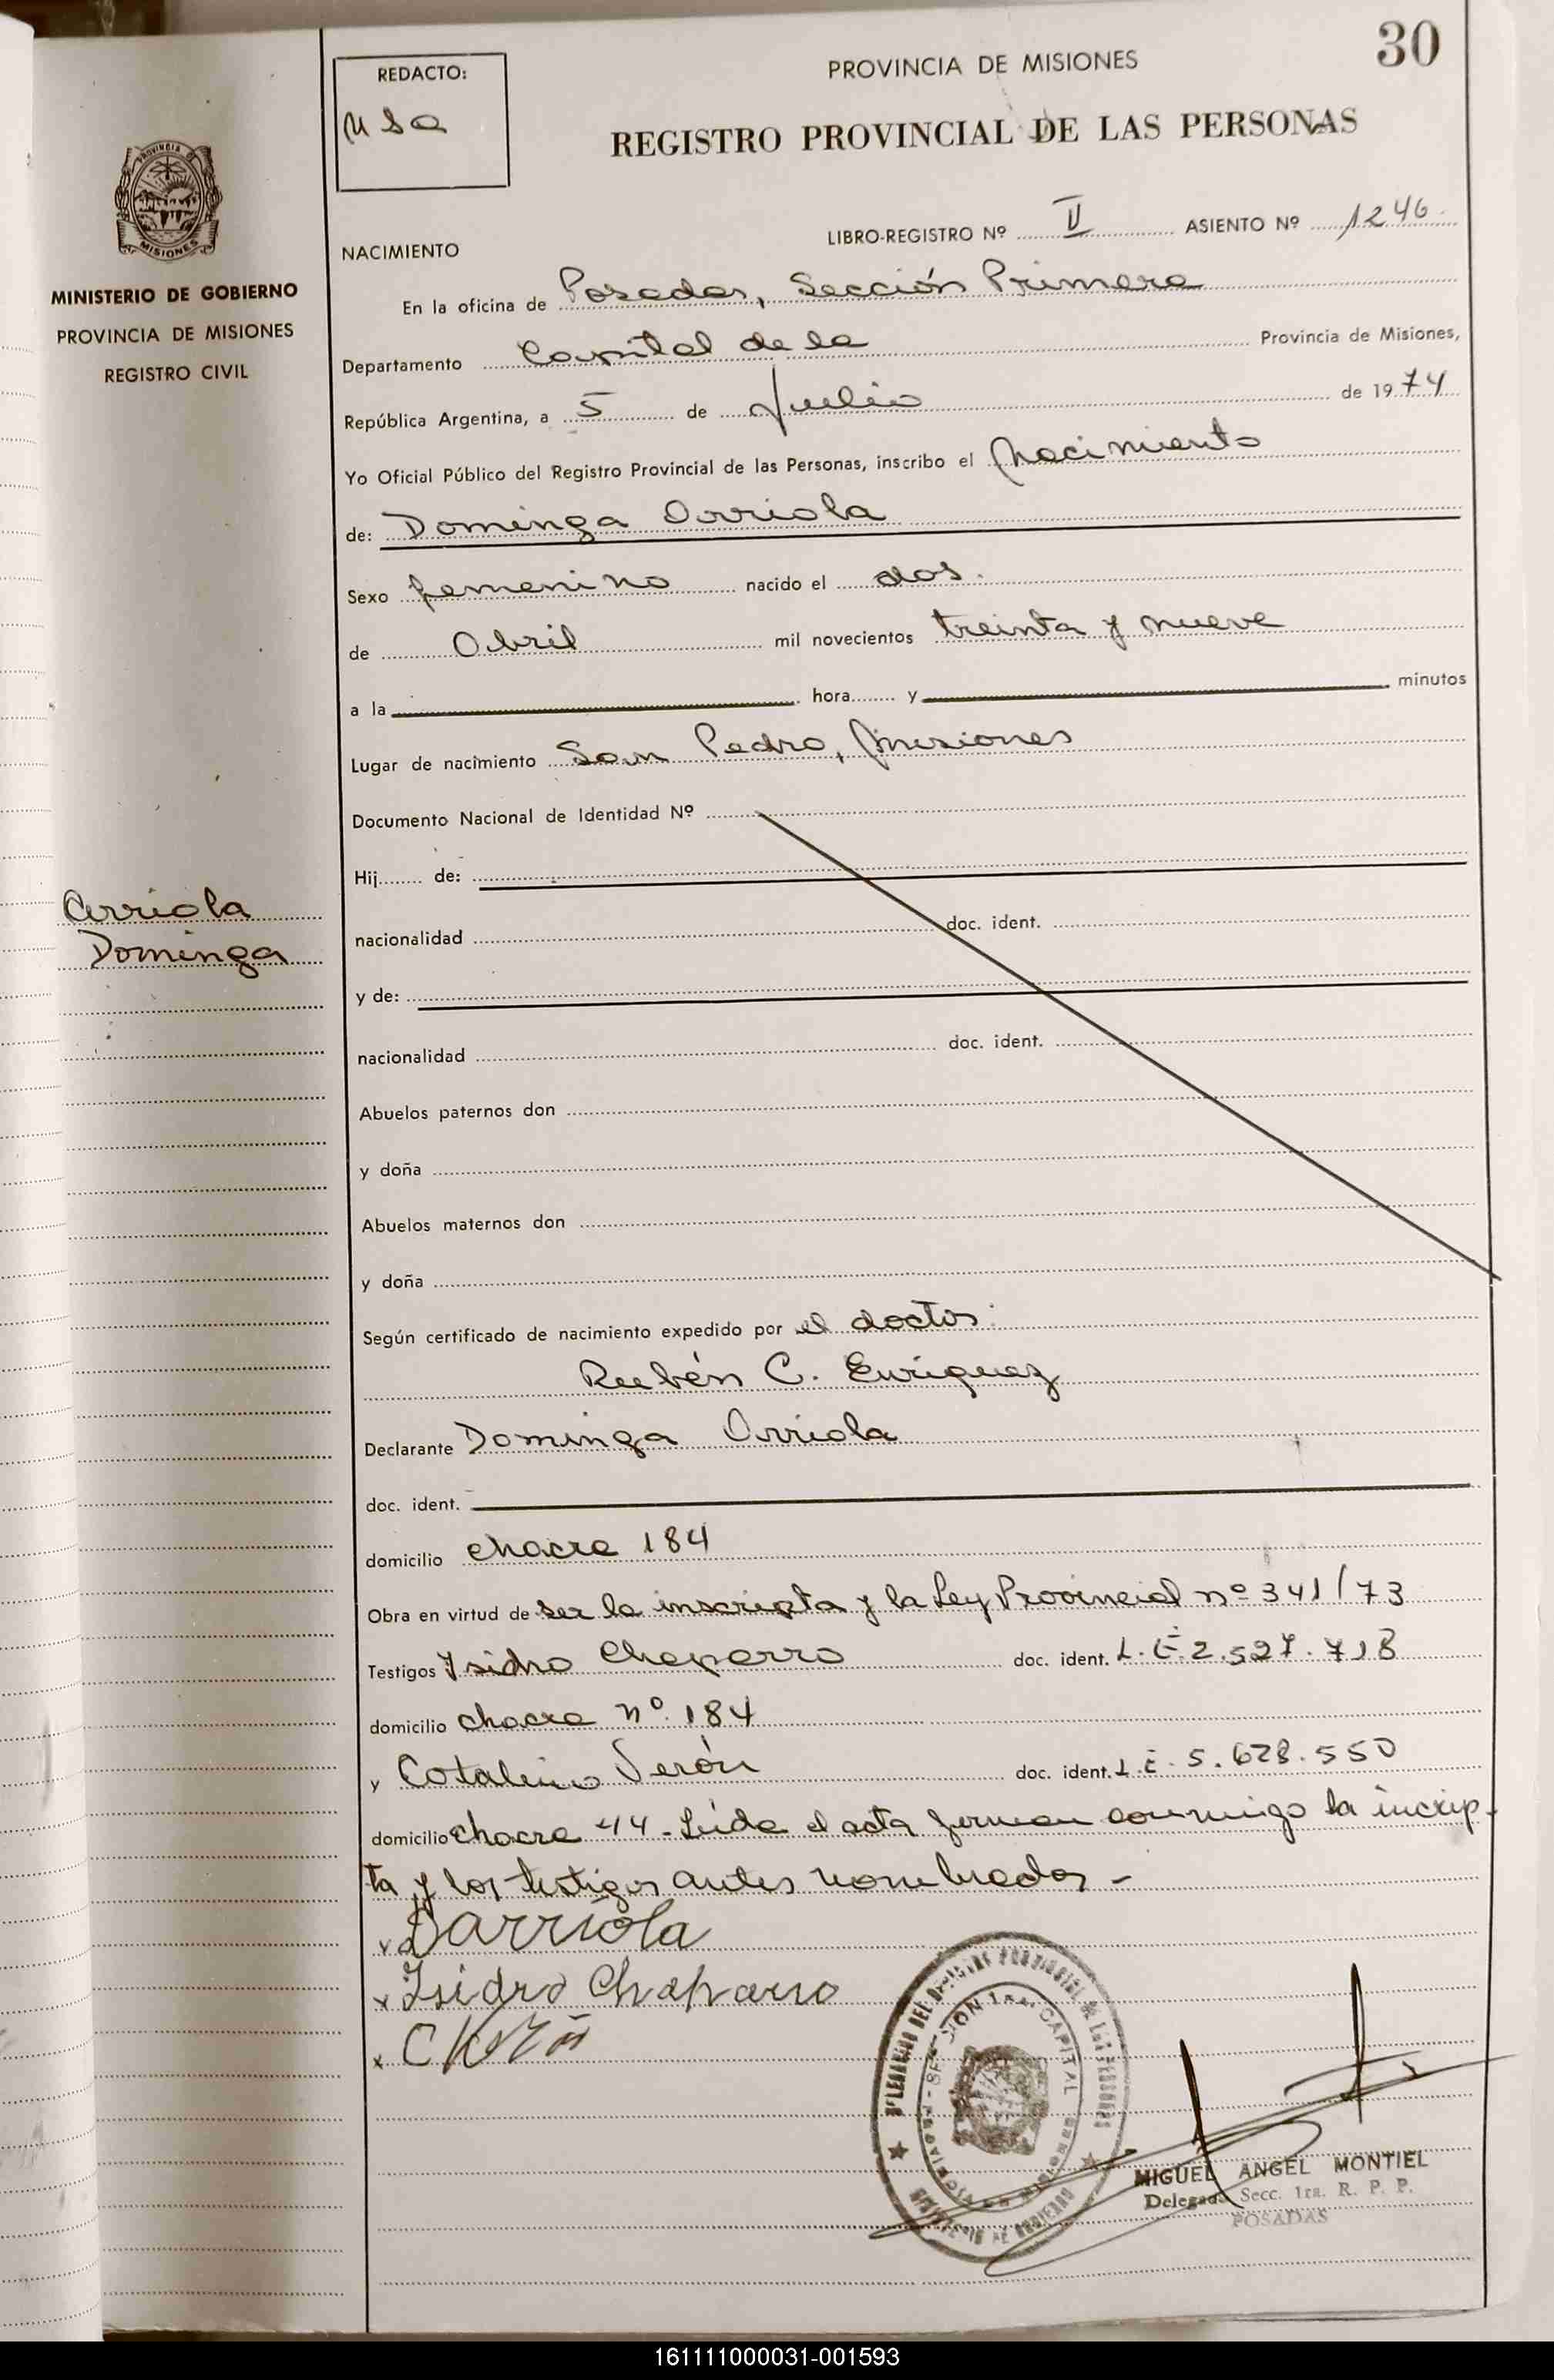 30
REDACTO:
PROVINCIA DE MISIONES
REGISTRO PROVINCIAL DE LAS PERSONAS
PROVINCIA DE
MISIONES
MINISTERIO DE GOBIERNO
PROVINCIA DE MISIONES
REGISTRO CIVIL
LIBRO-REGISTRO Nº II ASIENTO Nº 1246
NACIMIENTO
En la oficina de Posadas, Sección Primera
Departamento Capital de la Provincia de Misiones,
República Argentina, a 5 de Julio de 1974
Yo Oficial Público del Registro Provincial de las Personas, inscribo el Nacimiento
de: Dominga Arriola
Sexo femenino nacido el dos
de Abril mil novecientos treinta y nueve
a la hora y minutos
Lugar de nacimiento San Pedro, Misiones
Documento Nacional de Identidad Nº
Hij de:
Arriola
Dominga
nacionalidad doc. ident.
y de:
nacionalidad doc. ident.
Abuelos paternos don
y doña
Abuelos maternos don
y doña
Según certificado de nacimiento expedido por el doctor:
Rubén C. Enriquez
Declarante Dominga Arriola
doc. ident.
domicilio chacra 184
Obra en virtud de ser la inscripta y la Ley Provincial nº 341/73
Testigos Isidro Chaparro doc. ident. L.E 2.527.718
domicilio chacra nº 184
y Catalino Verón doc. ident. L.E. 5.628.550
domicilio chacra 44 - Leida el acta firman conmigo la incrip-
ta y los testigos antes nombrados -
x DArriola
x Isidro Chaparro
x
MIGUEL ANGEL MONTIEL
Delegado Secc. 1ra. R. P. P.
POSADAS
161111000031-001593